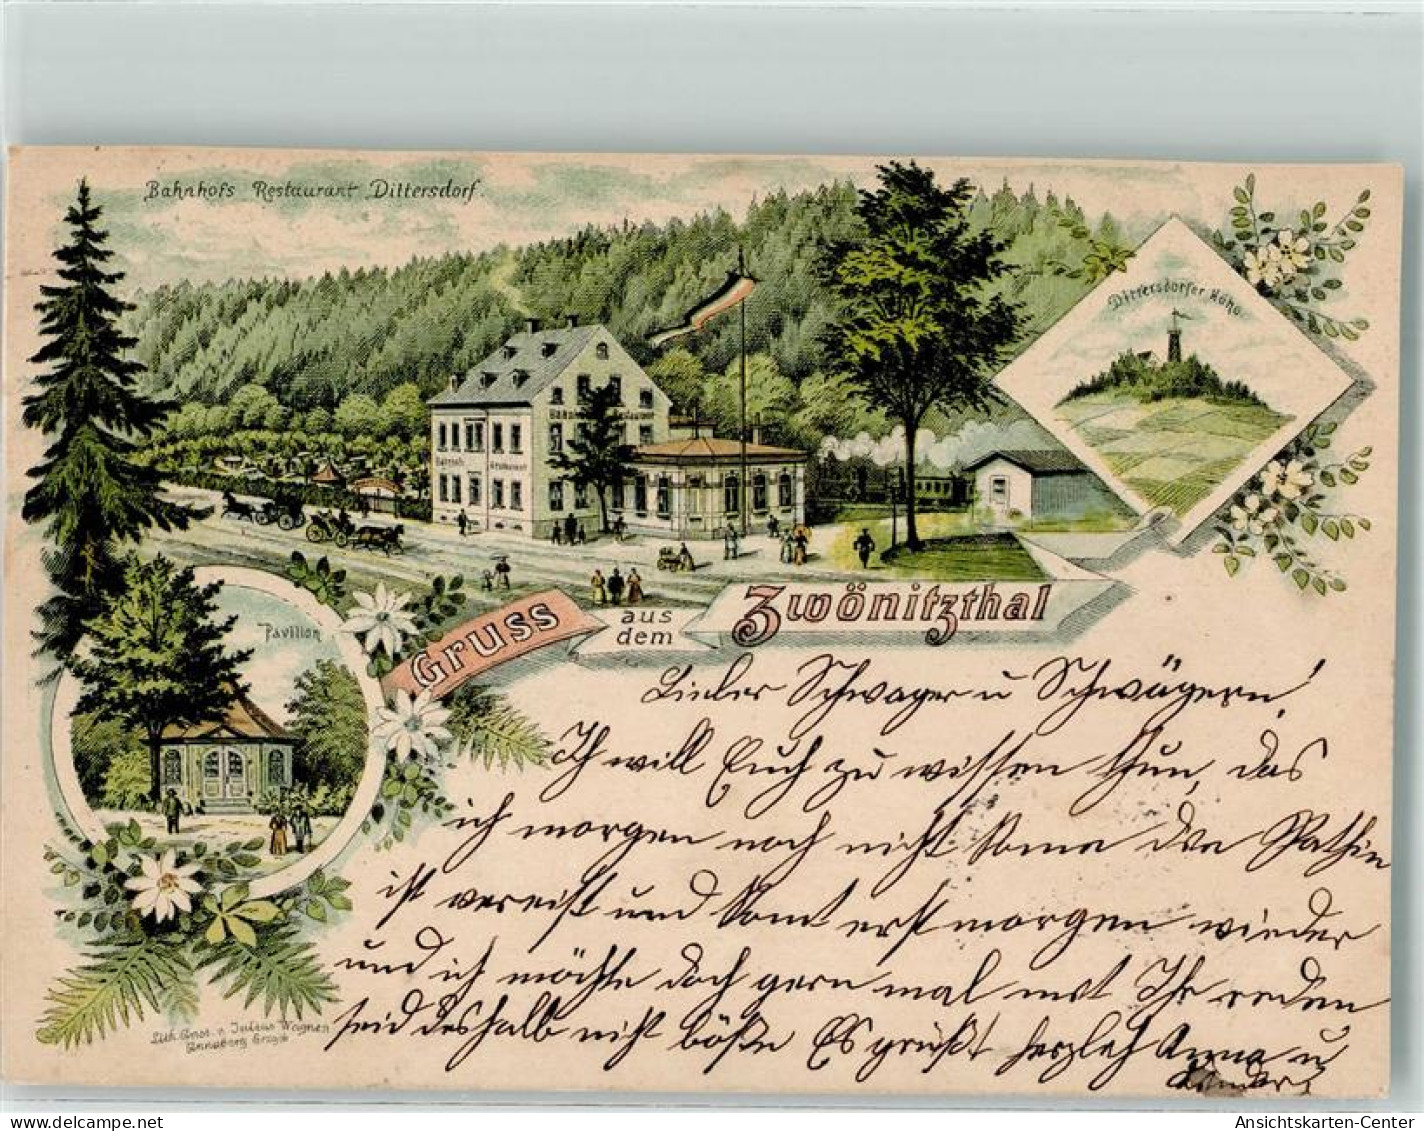 Bahnhofs Restaurant Dittersdorf.
Dittersdorfer Höhe.
Restaurant
Pavillon
Gruss aus dem Zwönitzthal
Lieber Schwager u Schwägern!
Ich will Euch zu wissen thun, das
ich morgen noch nicht kome die Pathin
ist vereist und komt erst morgen wieder
und ich möchte doch gern mal mit Ihr reden
seid deshalb nicht böße Es grüßt herzlich Anna u
Kinder
Lith. Anst. v. Julius Wagner
Annaberg Erzg.
Ansichtskarten-Center